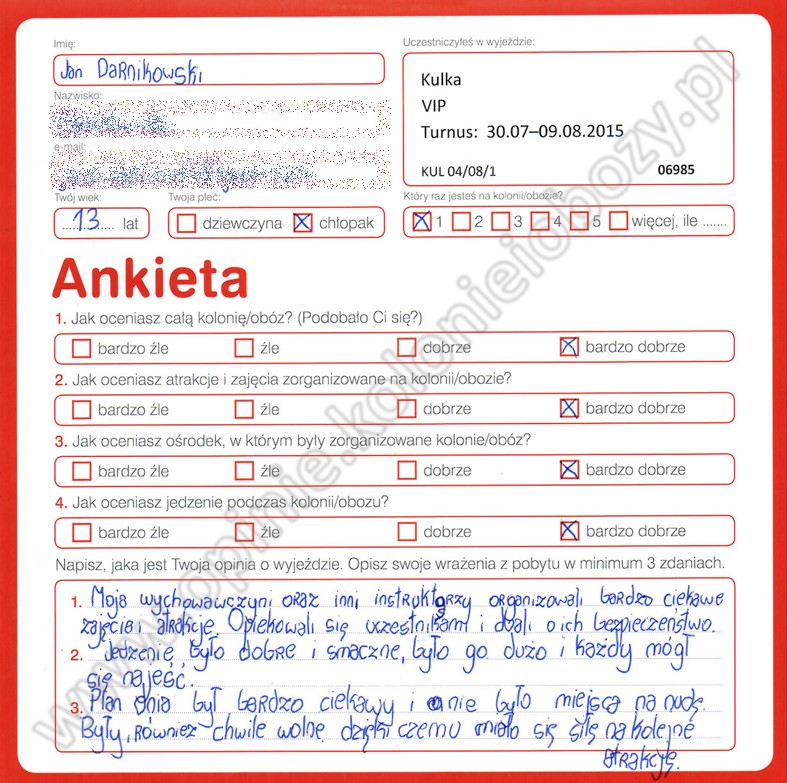 Imię:
Jan Darnikowski
Uczestniczyłeś w wyjeździe:
Kulka
VIP
Turnus: 30.07–09.08.2015
KUL 04/08/1 06985
Nazwisko:
e-mail:
Twój wiek:
13 lat
Twoja płeć:
dziewczyna chłopak
Który raz jesteś na kolonii/obozie?
1 2 3 4 5 więcej, ile .......
Ankieta
1. Jak oceniasz całą kolonię/obóz? (Podobało Ci się?)
bardzo źle źle dobrze bardzo dobrze
2. Jak oceniasz atrakcje i zajęcia zorganizowane na kolonii/obozie?
bardzo źle źle dobrze bardzo dobrze
3. Jak oceniasz ośrodek, w którym były zorganizowane kolonie/obóz?
bardzo źle źle dobrze bardzo dobrze
4. Jak oceniasz jedzenie podczas kolonii/obozu?
bardzo źle źle dobrze bardzo dobrze
Napisz, jaka jest Twoja opinia o wyjeździe. Opisz swoje wrażenia z pobytu w minimum 3 zdaniach.
1. Moja wychowawczyni oraz inni instruktorzy organizowali bardzo ciekawe
zajęcia i atrakcje. Opiekowali się uczestnikami i dbali o ich bezpieczeństwo.
2. Jedzenie było dobre i smaczne, było go dużo i każdy mógł
się najeść.
3. Plan dnia był bardzo ciekawy i nie było miejsca na nudę.
Były, również chwile wolne dzięki czemu miało się siłę na kolejne
atrakcje.
www.opinie.kolonieiobozy.pl